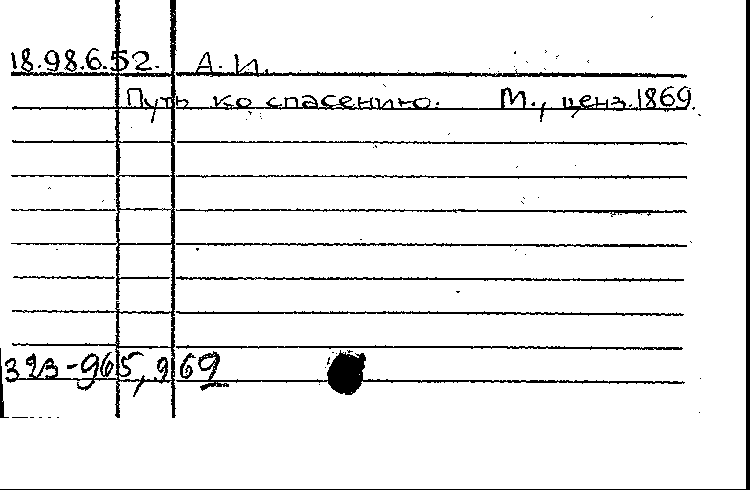 18.98.6.52. А. И.
Путь ко спасению. М., ценз. 1869.
323-965,969